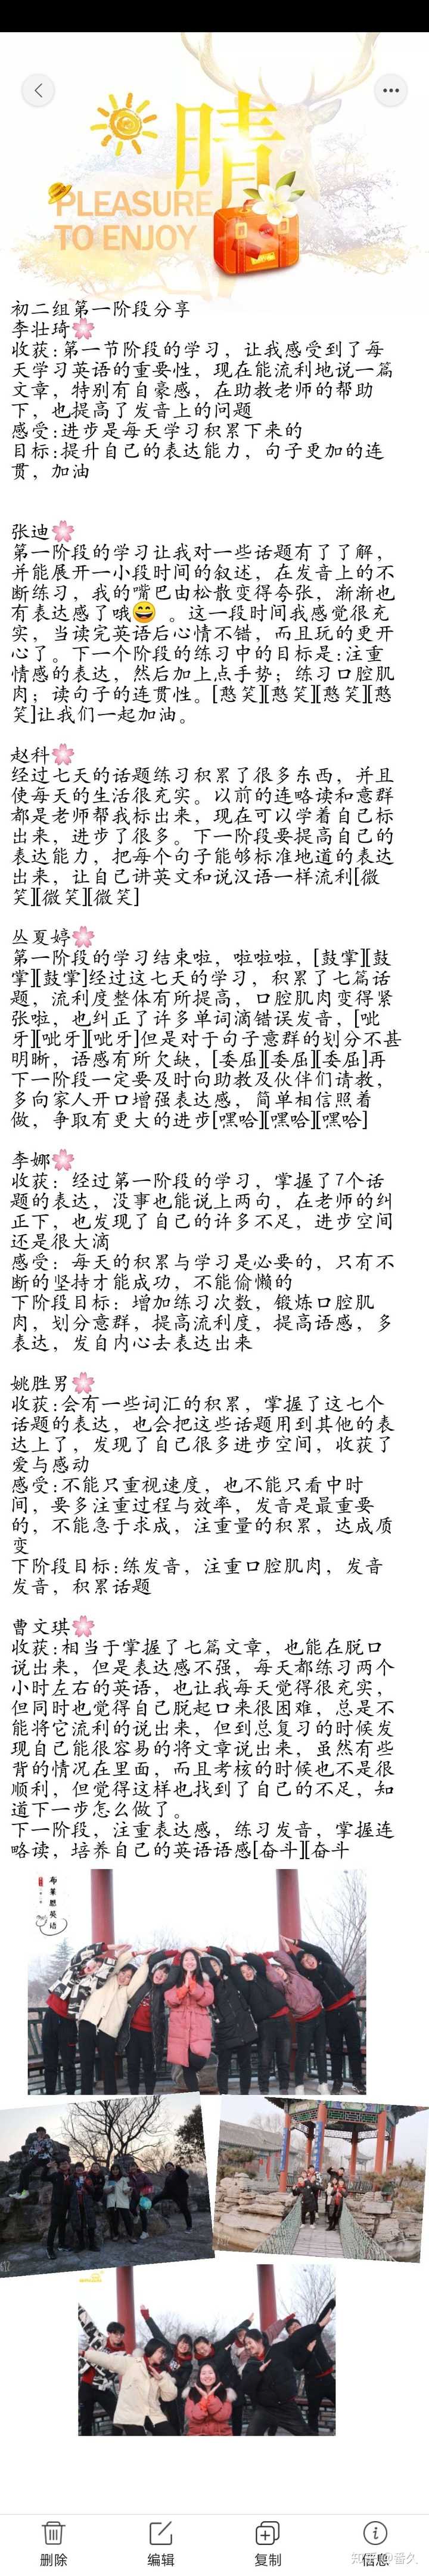 晴
PLEASURE
TO ENJOY
初二组第一阶段分享
李壮琦🌸
收获:第一节阶段的学习，让我感受到了每
天学习英语的重要性，现在能流利地说一篇
文章，特别有自豪感，在助教老师的帮助
下，也提高了发音上的问题
感受:进步是每天学习积累下来的
目标:提升自己的表达能力，句子更加的连
贯，加油
张迪🌸
第一阶段的学习让我对一些话题有了了解，
并能展开一小段时间的叙述，在发音上的不
断练习，我的嘴巴由松散变得夸张，渐渐也
有表达感了哦😄 。这一段时间我感觉很充
实，当读完英语后心情不错，而且玩的更开
心了。下一个阶段的练习中的目标是:注重
情感的表达，然后加上点手势；练习口腔肌
肉；读句子的连贯性。[憨笑][憨笑][憨笑][憨
笑]让我们一起加油。
赵科🌸
经过七天的话题练习积累了很多东西，并且
使每天的生活很充实。以前的连略读和意群
都是老师帮我标出来，现在可以学着自己标
出来，进步了很多。下一阶段要提高自己的
表达能力，把每个句子能够标准地道的表达
出来，让自己讲英文和说汉语一样流利[微
笑][微笑][微笑]
丛夏婷🌸
第一阶段的学习结束啦，啦啦啦，[鼓掌][鼓
掌][鼓掌]经过这七天的学习，积累了七篇话
题，流利度整体有所提高，口腔肌肉变得紧
张啦，也纠正了许多单词滴错误发音，[呲
牙][呲牙][呲牙]但是对于句子意群的划分不甚
明晰，语感有所欠缺，[委屈][委屈][委屈]再
下一阶段一定要及时向助教及伙伴们请教，
多向家人开口增强表达感，简单相信照着
做，争取有更大的进步[嘿哈][嘿哈][嘿哈]
李娜🌸
收获：经过第一阶段的学习，掌握了7个话
题的表达，没事也能说上两句，在老师的纠
正下，也发现了自己的许多不足，进步空间
还是很大滴
感受：每天的积累与学习是必要的，只有不
断的坚持才能成功，不能偷懒的
下阶段目标：增加练习次数，锻炼口腔肌
肉，划分意群，提高流利度，提高语感，多
表达，发自内心去表达出来
姚胜男🌸
收获:会有一些词汇的积累，掌握了这七个
话题的表达，也会把这些话题用到其他的表
达上了，发现了自己很多进步空间，收获了
爱与感动
感受:不能只重视速度，也不能只看中时
间，要多注重过程与效率，发音是最重要
的，不能急于求成，注重量的积累，达成质
变
下阶段目标:练发音，注重口腔肌肉，发音
发音，积累话题
曹文琪🌸
收获:相当于掌握了七篇文章，也能在脱口
说出来，但是表达感不强，每天都练习两个
小时左右的英语，也让我每天觉得很充实，
但同时也觉得自己脱起口来很困难，总是不
能将它流利的说出来，但到总复习的时候发
现自己能很容易的将文章说出来，虽然有些
背的情况在里面，而且考核的时候也不是很
顺利，但觉得这样也找到了自己的不足，知
道下一步怎么做了。
下一阶段，注重表达感，练习发音，掌握连
略读，培养自己的英语语感[奋斗][奋斗
布莱恩英语
删除 编辑 复制 信息
知乎 @香久